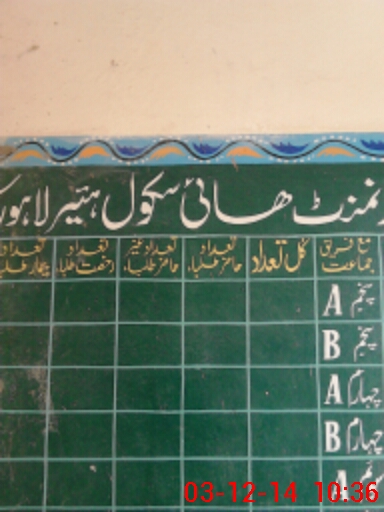 نمنٹ ھائی سکول ہئیر لاہور
مع فریق جماعت کل تعداد تعداد حاضر طلباء تعداد غیر حاضر طلباء تعداد رخصت طلباء تعداد بیمار طلباء
پنجم A
پنجم B
چہارم A
چہارم B
A
03-12-14 10:36